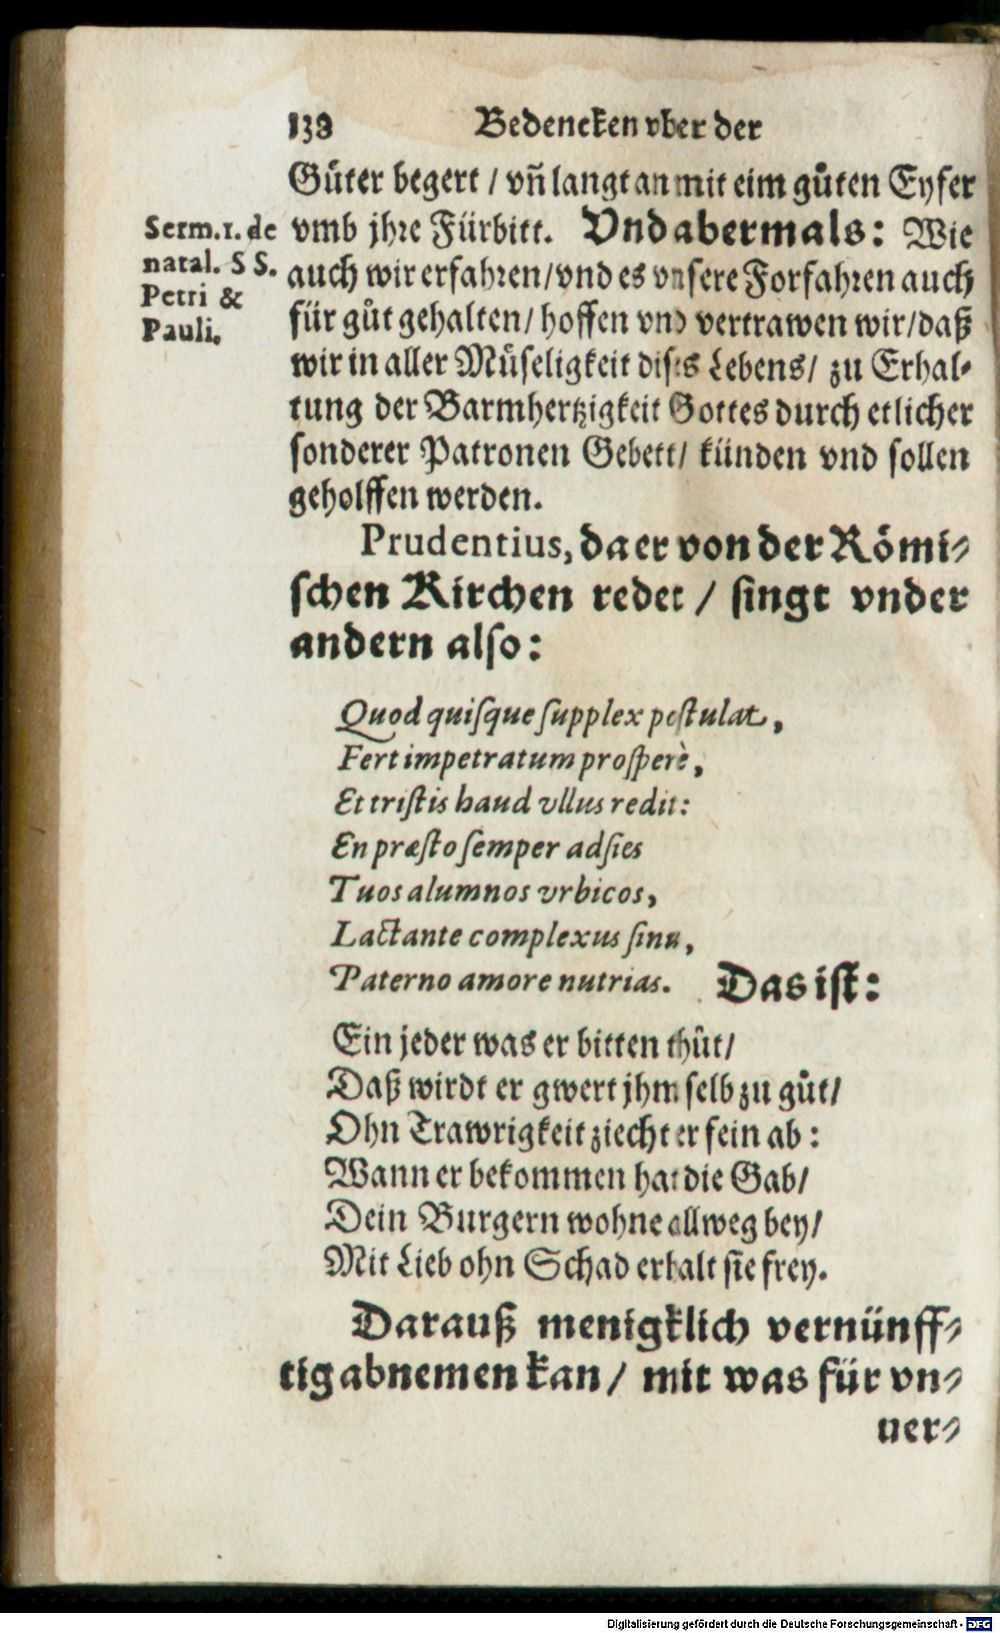 138 Bedencken vber der
Gůter begert / vñ langt an mit eim gůten Eyfer
vmb jhre Fürbitt. Vnd abermals: Wie
auch wir erfahren/vnd es vnsere Forfahren auch
für gůt gehalten/ hoffen vnd vertrawen wir/daß
wir in aller Müseligkeit dises Lebens/ zu Erhal-
tung der Barmhertzigkeit Gottes durch etlicher
sonderer Patronen Gebett/ künden vnd sollen
geholffen werden.
Serm. 1. de
natal. S S.
Petri &
Pauli.
Prudentius, da er von der Römi-
schen Kirchen redet / singt vnder
andern also:
Quod quiſque ſupplex poſtulat,
Fert impetratum proſperè,
Et triſtis haud vllus redit:
En præſto ſemper adſies
Tuos alumnos vrbicos,
Lactante complexus ſinu,
Paterno amore nutrias. Das ist:
Ein jeder was er bitten thůt/
Daß wirdt er gwert jhm selb zu gůt/
Ohn Trawrigkeit ziecht er fein ab:
Wann er bekommen hat die Gab/
Dein Burgern wohne allweg bey/
Mit Lieb ohn Schad erhalt sie frey.
Darauß menigklich vernünff-
tig abnemen kan/ mit was für vn-
uer-
Digitalisierung gefördert durch die Deutsche Forschungsgemeinschaft - DFG